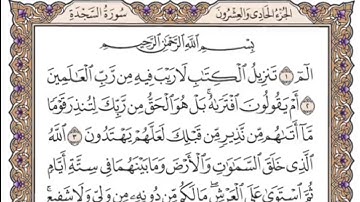 الجزء الحادي والعشرون
سورة السجدة
بِسْمِ ٱللَّهِ ٱلرَّحْمَٰنِ ٱلرَّحِيمِ
الٓمٓ ١ تَنزِيلُ ٱلْكِتَٰبِ لَا رَيْبَ فِيهِ مِن رَّبِّ ٱلْعَٰلَمِينَ
٢ أَمْ يَقُولُونَ ٱفْتَرَىٰهُ ۚ بَلْ هُوَ ٱلْحَقُّ مِن رَّبِّكَ لِتُنذِرَ قَوْمًا
مَّآ أَتَىٰهُم مِّن نَّذِيرٍ مِّن قَبْلِكَ لَعَلَّهُمْ يَهْتَدُونَ ٣ ٱللَّهُ
ٱلَّذِى خَلَقَ ٱلسَّمَٰوَٰتِ وَٱلْأَرْضَ وَمَا بَيْنَهُمَا فِى سِتَّةِ أَيَّامٍ
ثُمَّ ٱسْتَوَىٰ عَلَى ٱلْعَرْشِ ۖ مَا لَكُم مِّن دُونِهِۦ مِن وَلِىٍّ وَلَا شَفِيعٍ ۚ